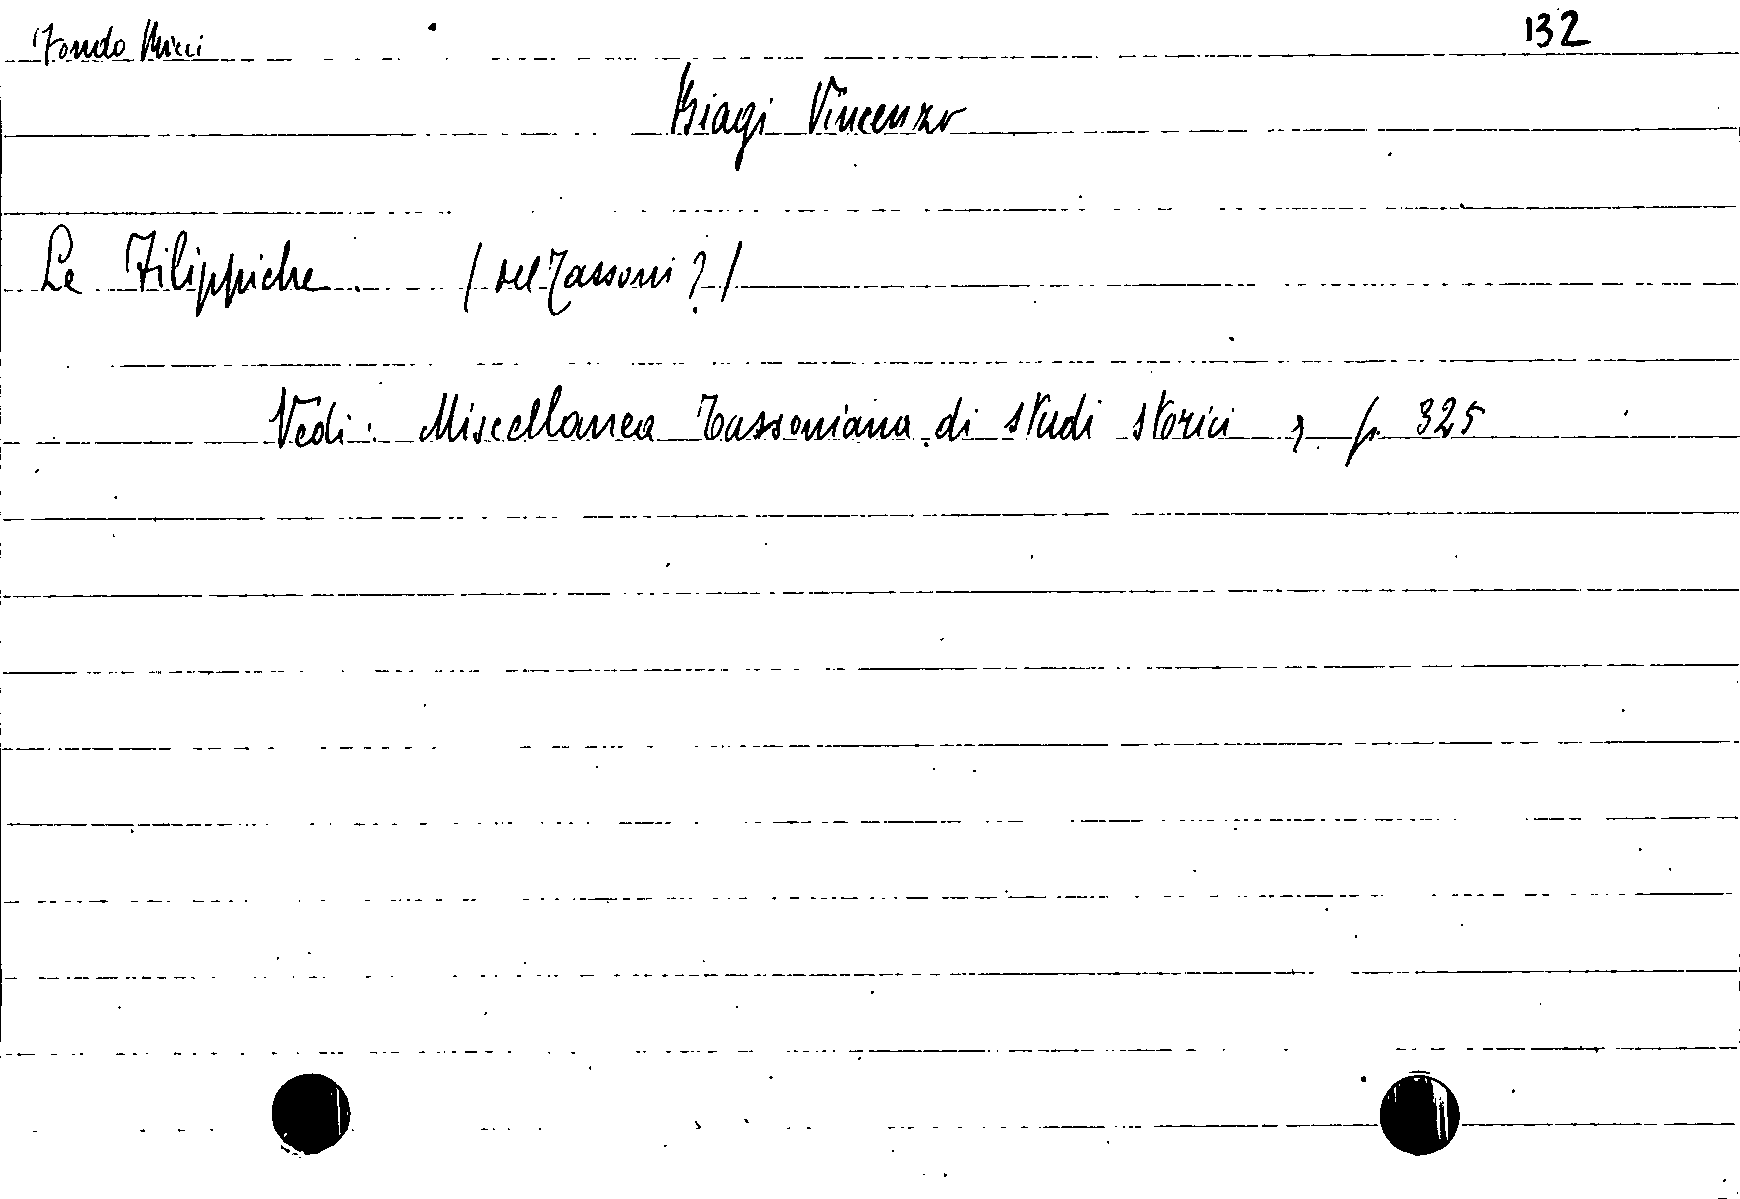 Fondo Ricci 132
Biagi Vincenzo
Le Filippiche. (del Tassoni?)
Vedi: Miscellanea Tassoniana di studi storici, p. 325